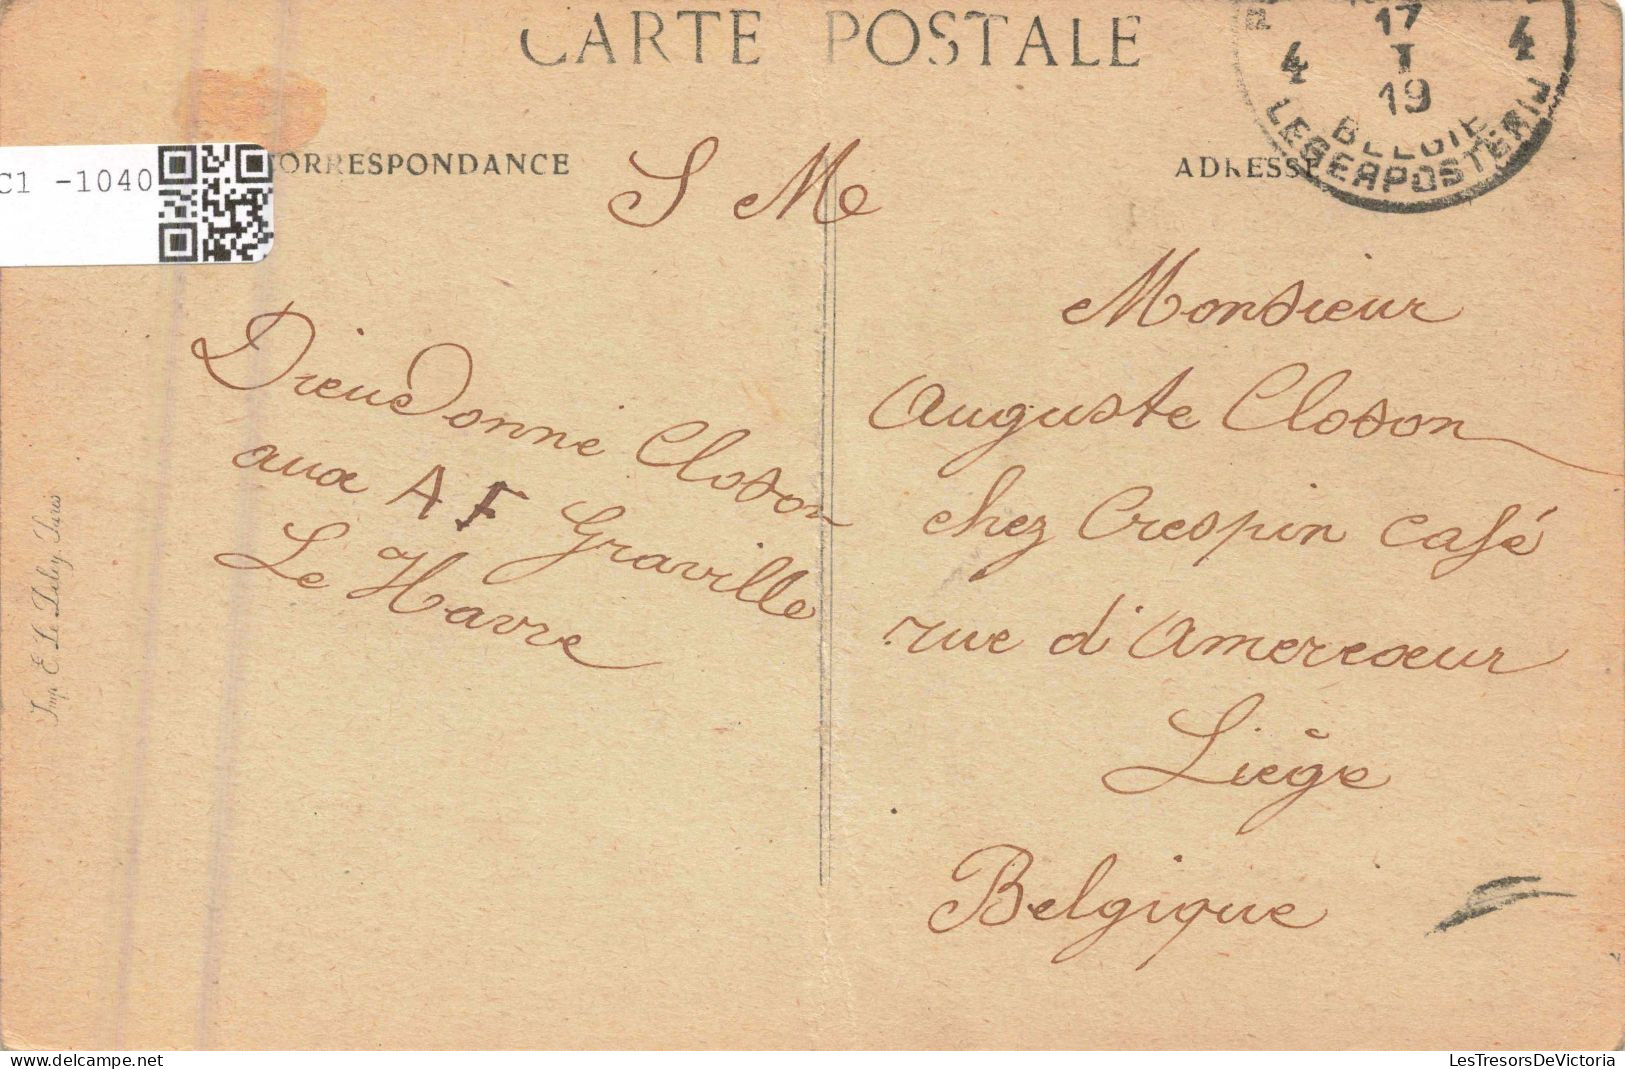 CARTE POSTALE
CORRESPONDANCE
ADRESSE
17
4 I 4
19
BELGIE
LEGERPOSTERIJ
C1 -1040
S M
Dieudonné Closon
aux A F Graville
Le Havre
Monsieur
Auguste Closon
chez Crespin café
rue d'Amercoeur
Liège
Belgique
Imp. E. Le Deley, Paris
LesTresorsDeVictoria